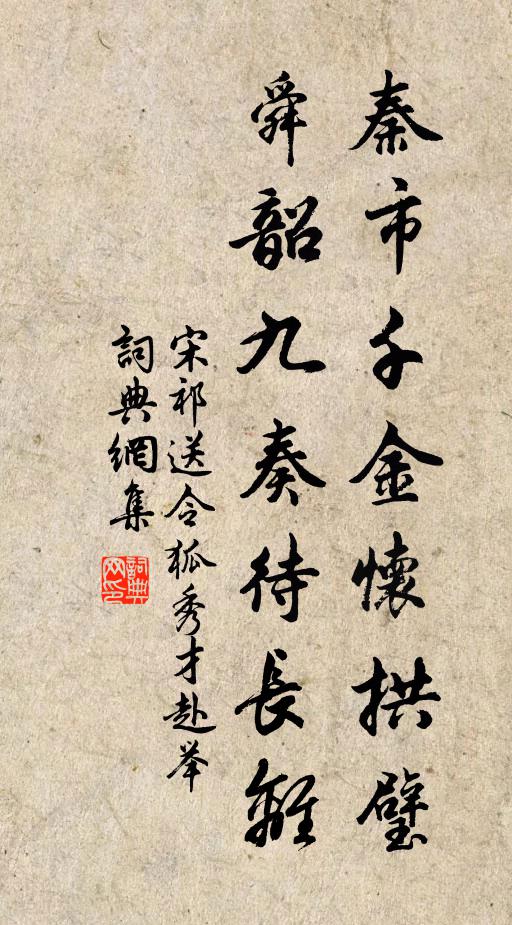 秦市千金懷拱璧
舜韶九奏待長離
宋祁送令狐秀才赴举
詞典網集
詞典網印